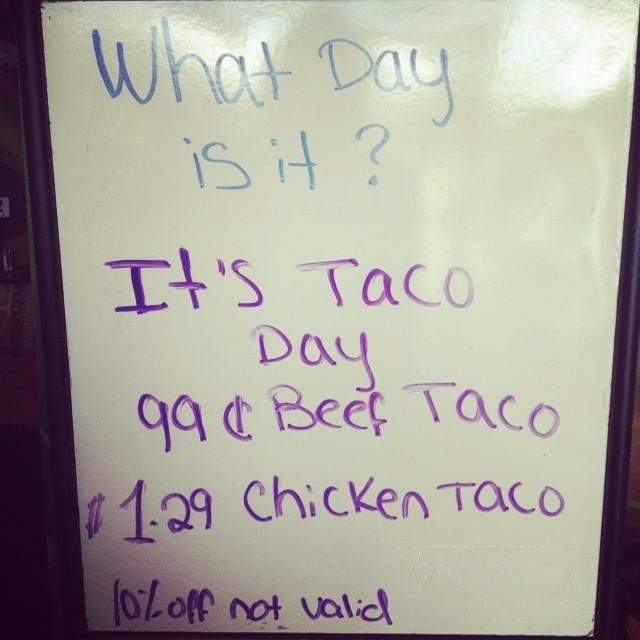 What Day
is it?
It's Taco
Day
99¢ Beef Taco
$1.29 Chicken Taco
10% off not valid